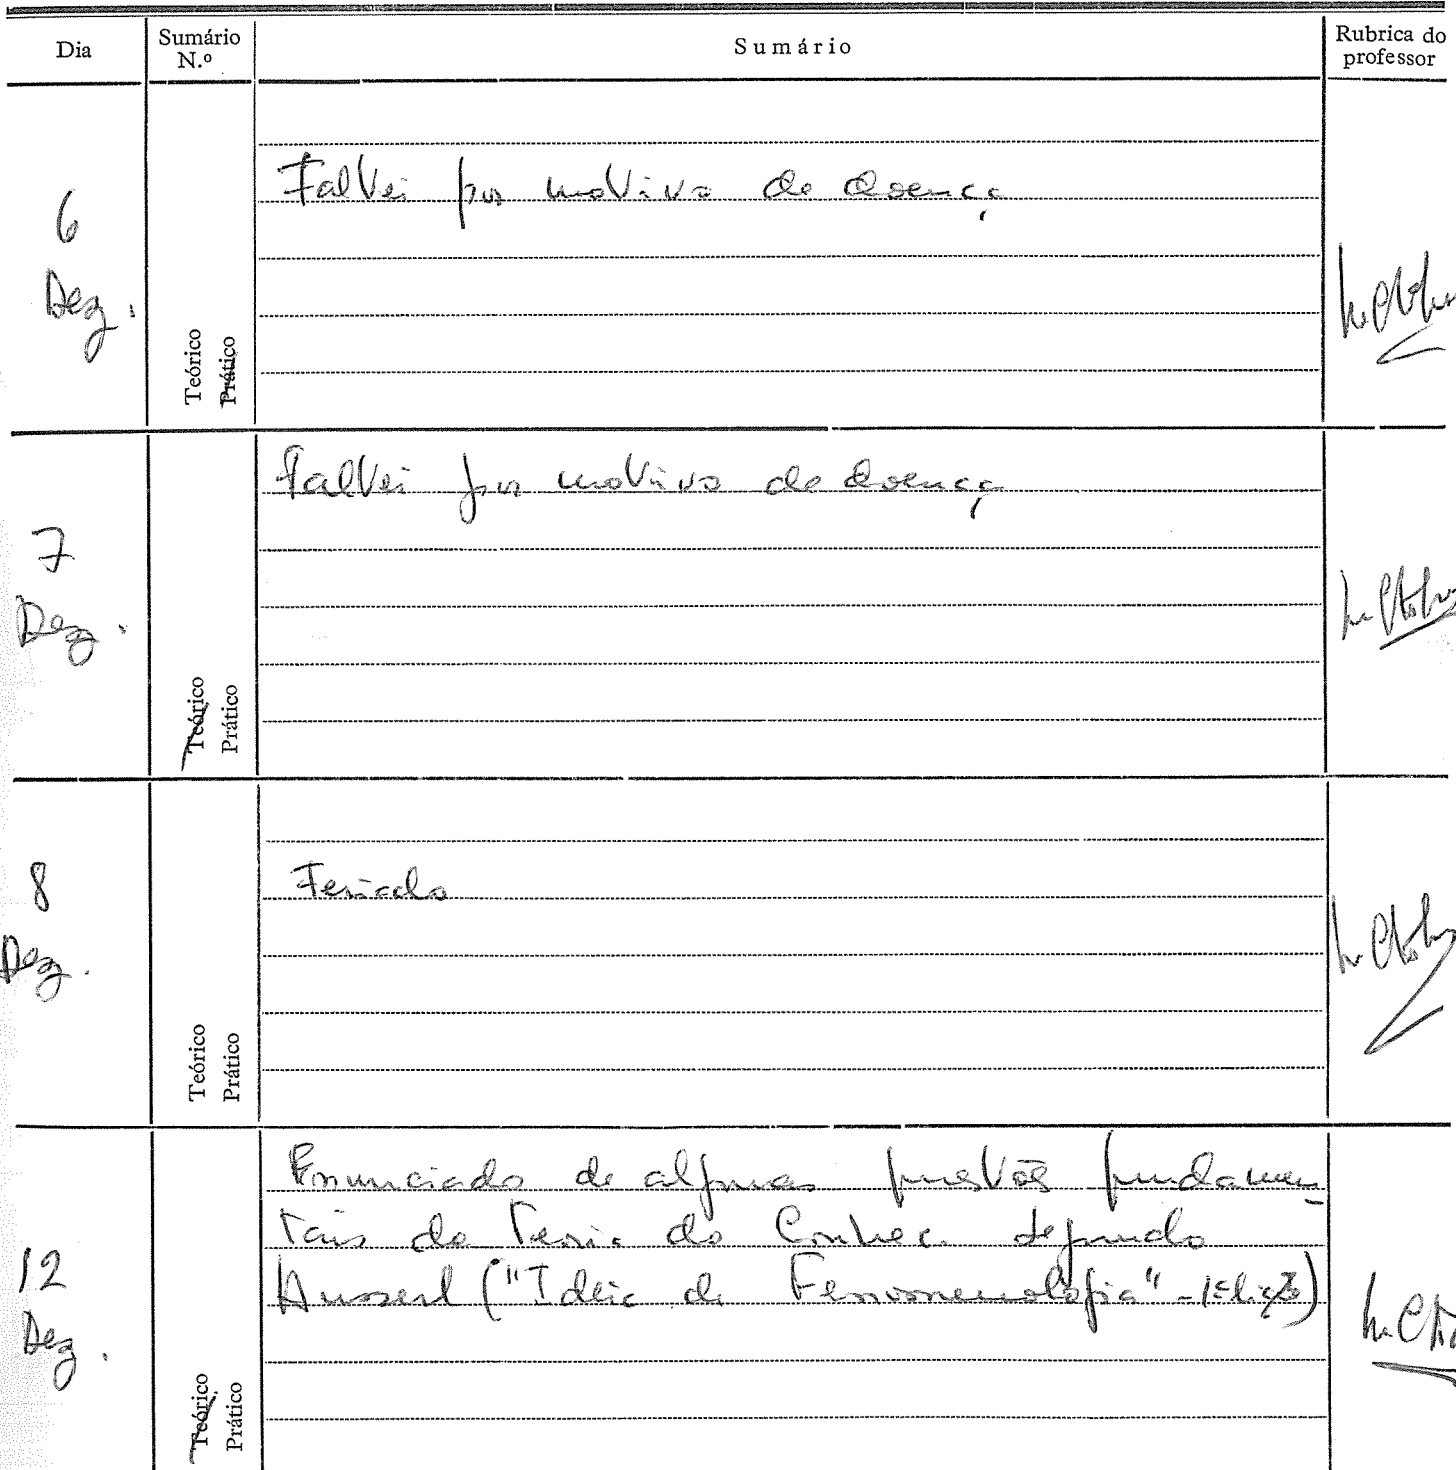 Dia Sumário N.º Sumário Rubrica do professor
6 Dez.
Teórico Prático
Faltei por motivo de doença
7 Dez.
Teórico Prático
Faltei por motivo de doença
8 Dez.
Teórico Prático
Feriado
12 Dez.
Teórico Prático
Enunciado de algumas questões fundamen-
tais da Teoria do Conhec. segundo
Husserl ("Ideia da Fenomenologia" - 1ª lição)